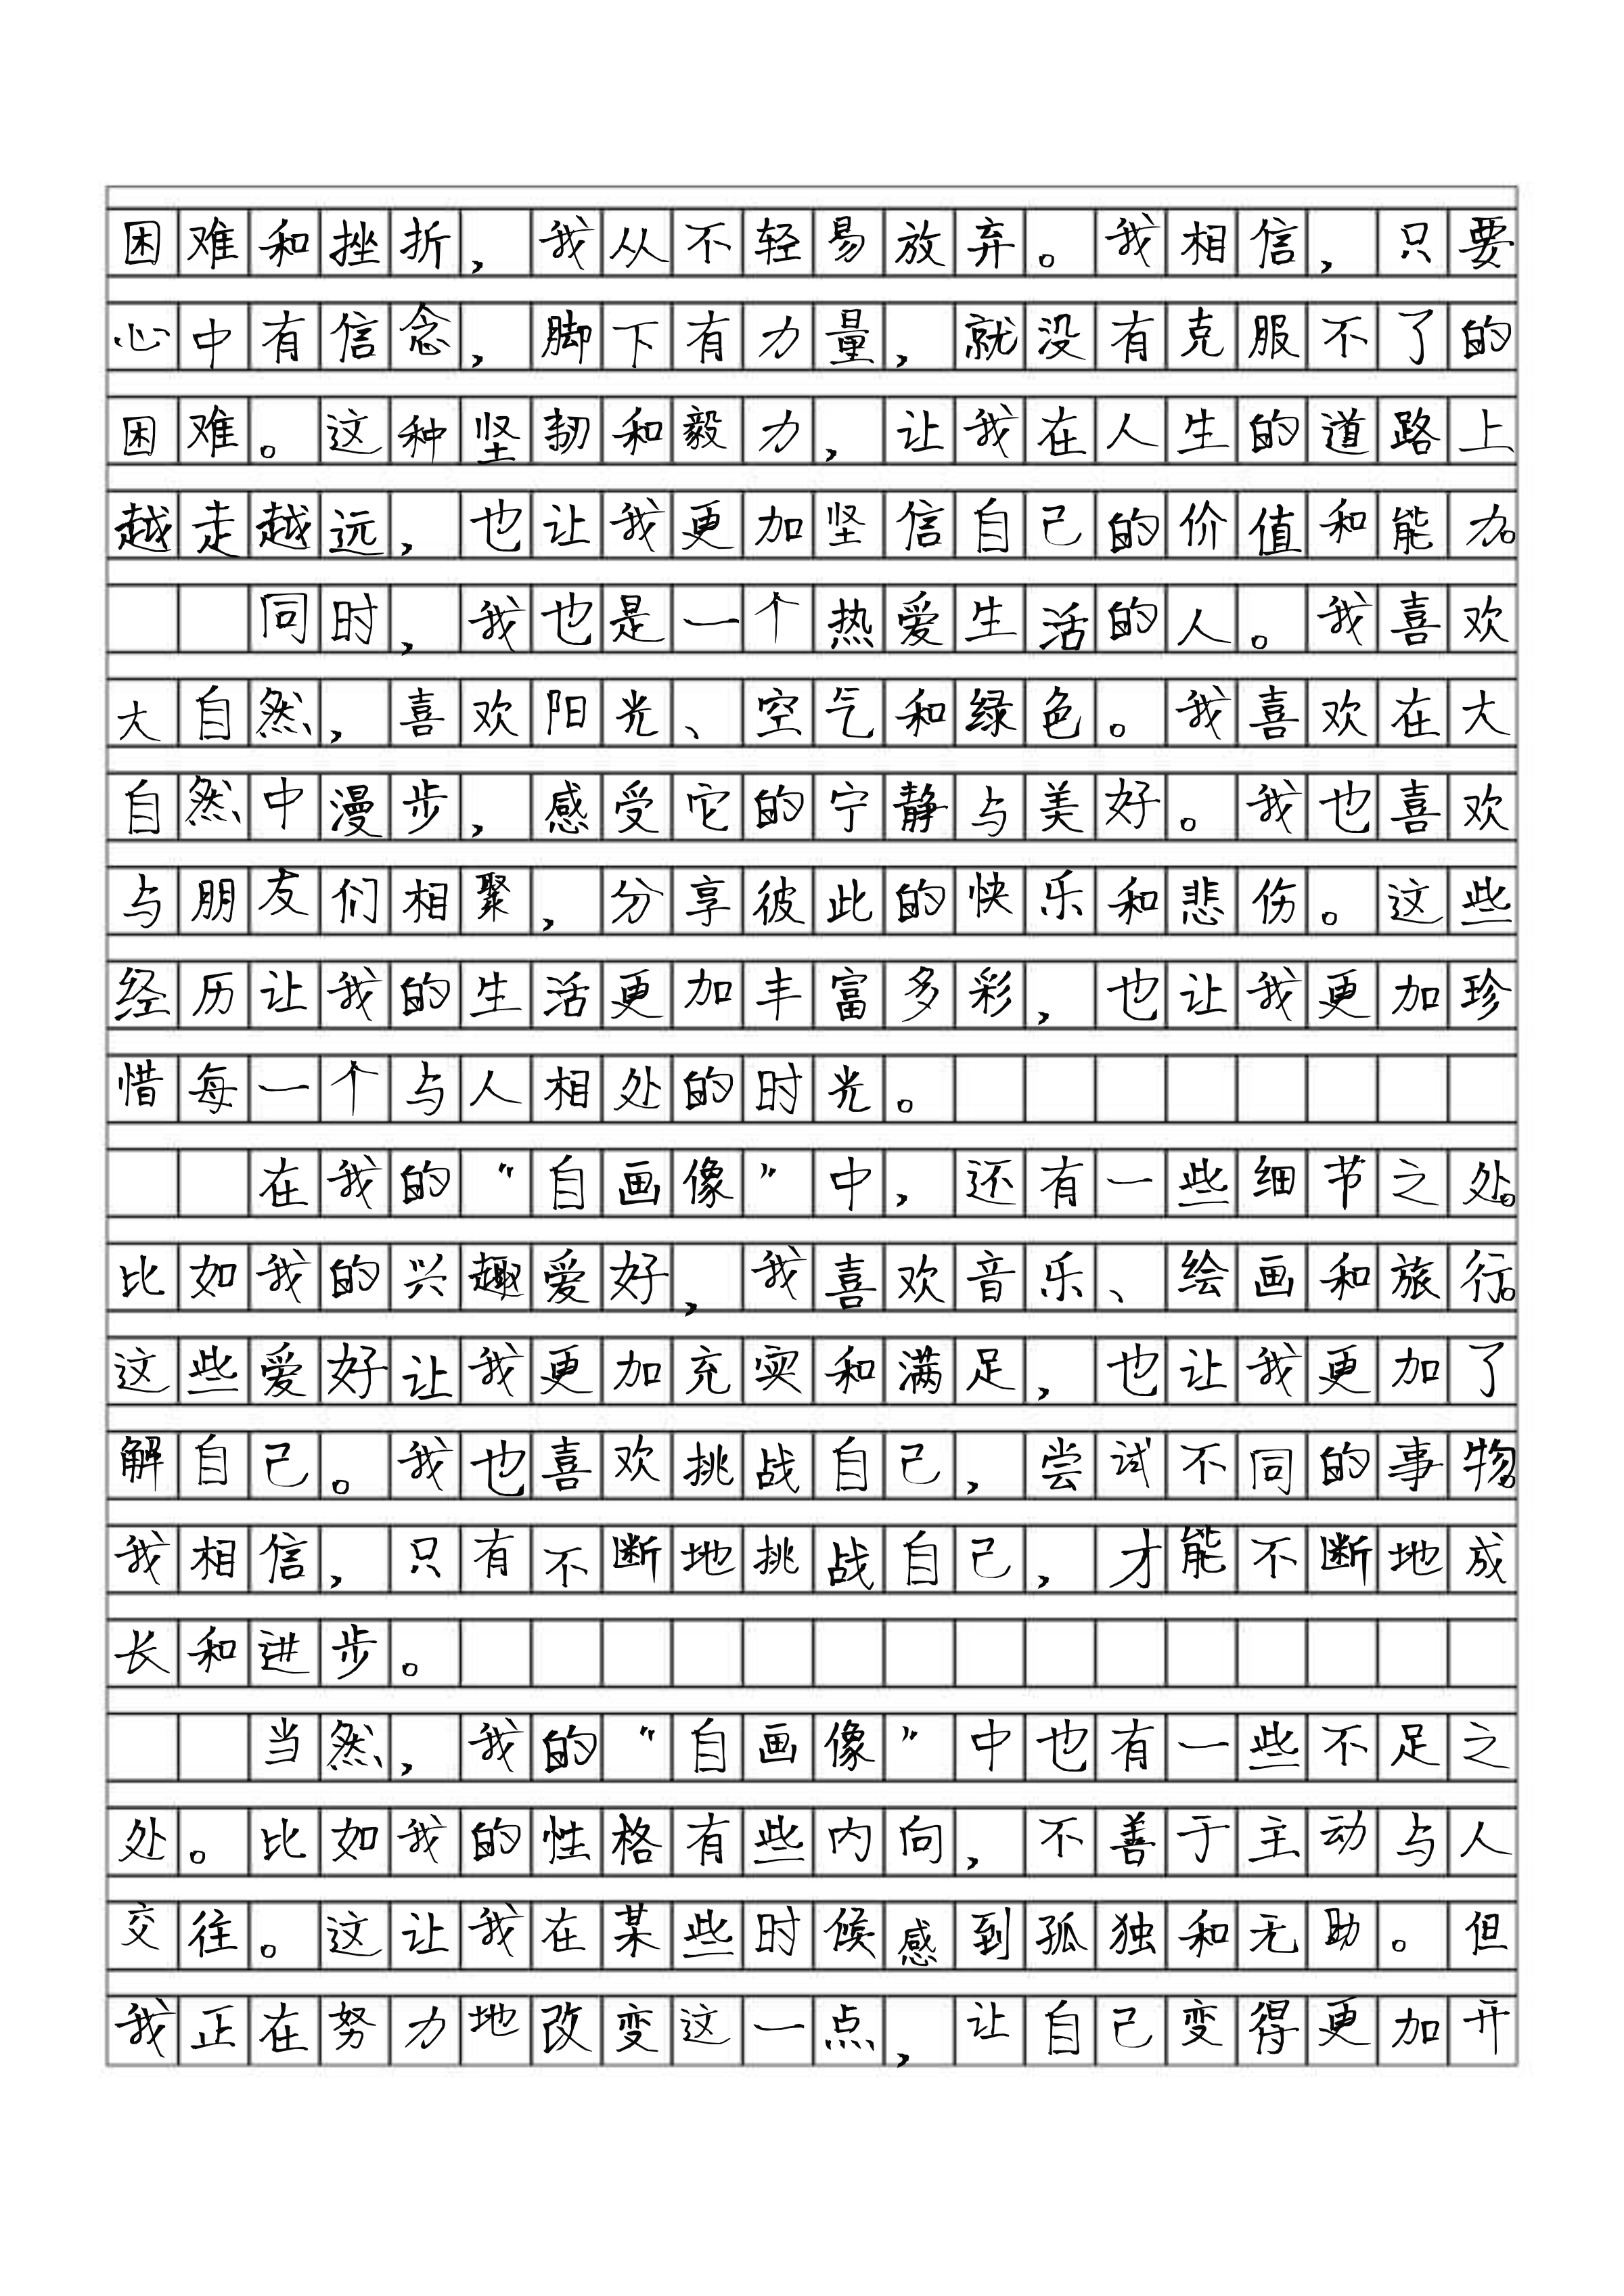 困难和挫折，我从不轻易放弃。我相信，只要
心中有信念，脚下有力量，就没有克服不了的
困难。这种坚韧和毅力，让我在人生的道路上
越走越远，也让我更加坚信自己的价值和能力。
同时，我也是一个热爱生活的人。我喜欢
大自然，喜欢阳光、空气和绿色。我喜欢在大
自然中漫步，感受它的宁静与美好。我也喜欢
与朋友们相聚，分享彼此的快乐和悲伤。这些
经历让我的生活更加丰富多彩，也让我更加珍
惜每一个与人相处的时光。
在我的“自画像”中，还有一些细节之处。
比如我的兴趣爱好，我喜欢音乐、绘画和旅行。
这些爱好让我更加充实和满足，也让我更加了
解自己。我也喜欢挑战自己，尝试不同的事物。
我相信，只有不断地挑战自己，才能不断地成
长和进步。
当然，我的“自画像”中也有一些不足之
处。比如我的性格有些内向，不善于主动与人
交往。这让我在某些时候感到孤独和无助。但
我正在努力地改变这一点，让自己变得更加开